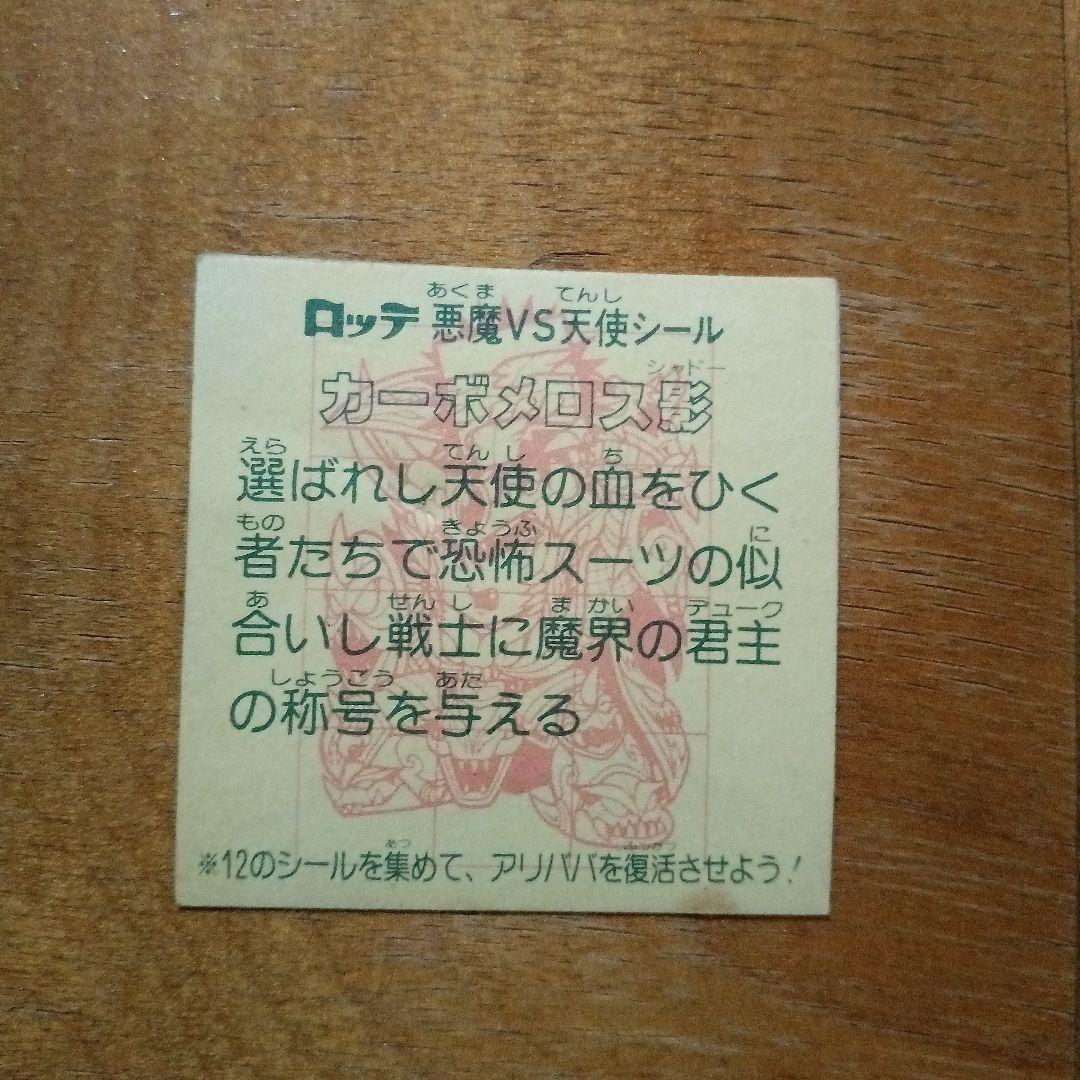 あくま てんし
ロッテ 悪魔VS天使シール
シャドー
カーボメロス影
えら てんし ち
選ばれし天使の血をひく
もの きょうふ に
者たちで恐怖スーツの似
あ せんし まかい デューク
合いし戦士に魔界の君主
しょうごう あた
の称号を与える
あつ ふっかつ
※12のシールを集めて、アリババを復活させよう!